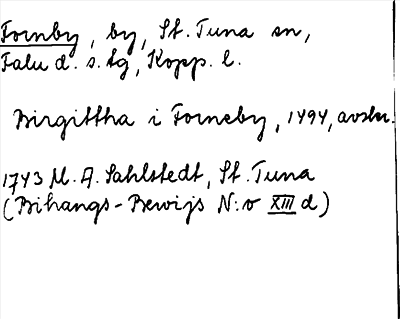 Fornby, by, St. Tuna sn,
Falu d. s. tg, Kopp. l.
Birgittha i Forneby, 1494, avskr.
1743 M. A. Sahlstedt, St. Tuna
(Bihangs-Bewijs N:o XIII d)